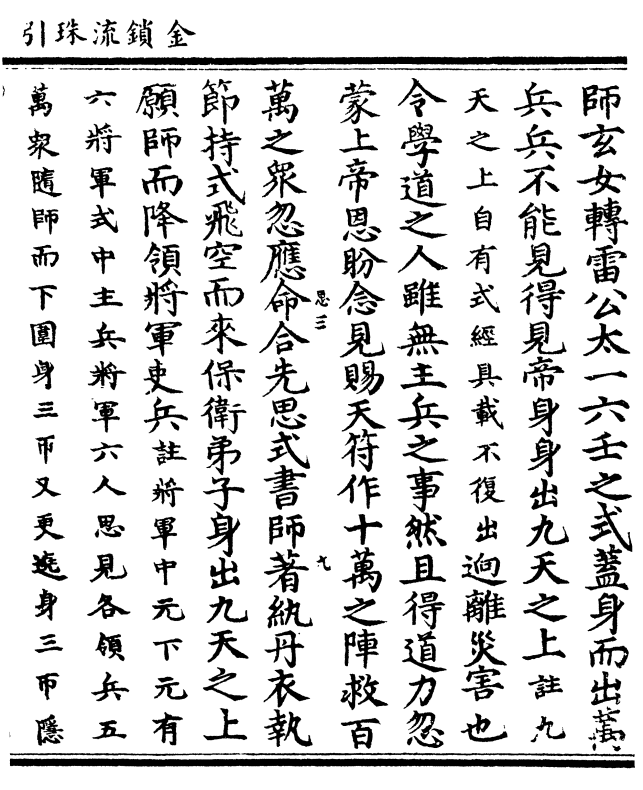 金鎖流珠引
師玄女轉雷公太一六壬之式蓋身而出萬
兵兵不能見得見帝身身出九天之上註九
天之上自有式經具載不復出迥離災害也
令學道之人雖無主兵之事然且得道力忽
蒙上帝恩盼念見賜天符作十萬之陣救百
思三
九
萬之眾忽應命合先思式書師著紈丹衣執
節持式飛空而來保衛弟子身出九天之上
願師而降領將軍吏兵註將軍中元下元有
六將軍式中主兵將軍六人思見各領兵五
萬眾隨師而下圍身三帀又更遶身三帀隱